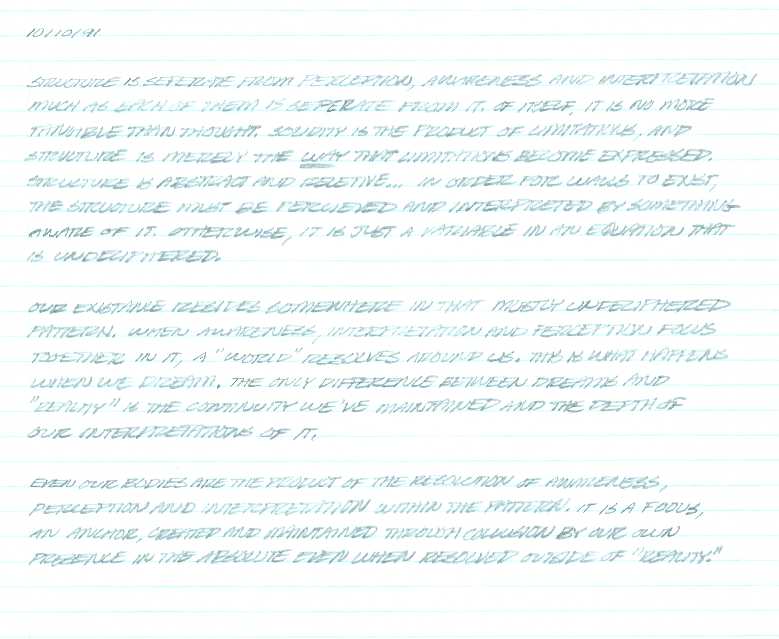 10/10/91
STRUCTURE IS SEPERATE FROM PERCEPTION, AWARENESS AND INTERPRETATION
MUCH AS EACH OF THEM IS SEPERATE FROM IT. OF ITSELF, IT IS NO MORE
TANGIBLE THAN THOUGHT. SOLIDITY IS THE PRODUCT OF LIMITATIONS, AND
STRUCTURE IS MERELY THE WAY THAT LIMITATIONS BECOME EXPRESSED.
STRUCTURE IS ABSTRACT AND RELETIVE... IN ORDER FOR WALLS TO EXIST,
THE STRUCTURE MUST BE PERCIEVED AND INTERPRETED BY SOMETHING
AWARE OF IT. OTHERWISE, IT IS JUST A VARIABLE IN AN EQUATION THAT
IS UNDECIPHERED.
OUR EXISTANCE RESIDES SOMEWHERE IN THAT MOSTLY UNDECIPHERED
PATTERN. WHEN AWARENESS, INTERPRETATION AND PERCEPTION FOCUS
TOGETHER IN IT, A "WORLD" RESOLVES AROUND US. THIS IS WHAT HAPPENS
WHEN WE DREAM. THE ONLY DIFFERENCE BETWEEN DREAMS AND
"REALITY" IS THE CONTINUITY WE'VE MAINTAINED AND THE DEPTH OF
OUR INTERPRETATIONS OF IT.
EVEN OUR BODIES ARE THE PRODUCT OF THE RESOLUTION OF AWARENESS,
PERCEPTION AND INTERPRETATION WITHIN THE PATTERN. IT IS A FOCUS,
AN ANCHOR, CREATED AND MAINTAINED THROUGH COLLUSION BY OUR OWN
PRESENCE IN THE ABSOLUTE EVEN WHEN RESOLVED OUTSIDE OF "REALITY."